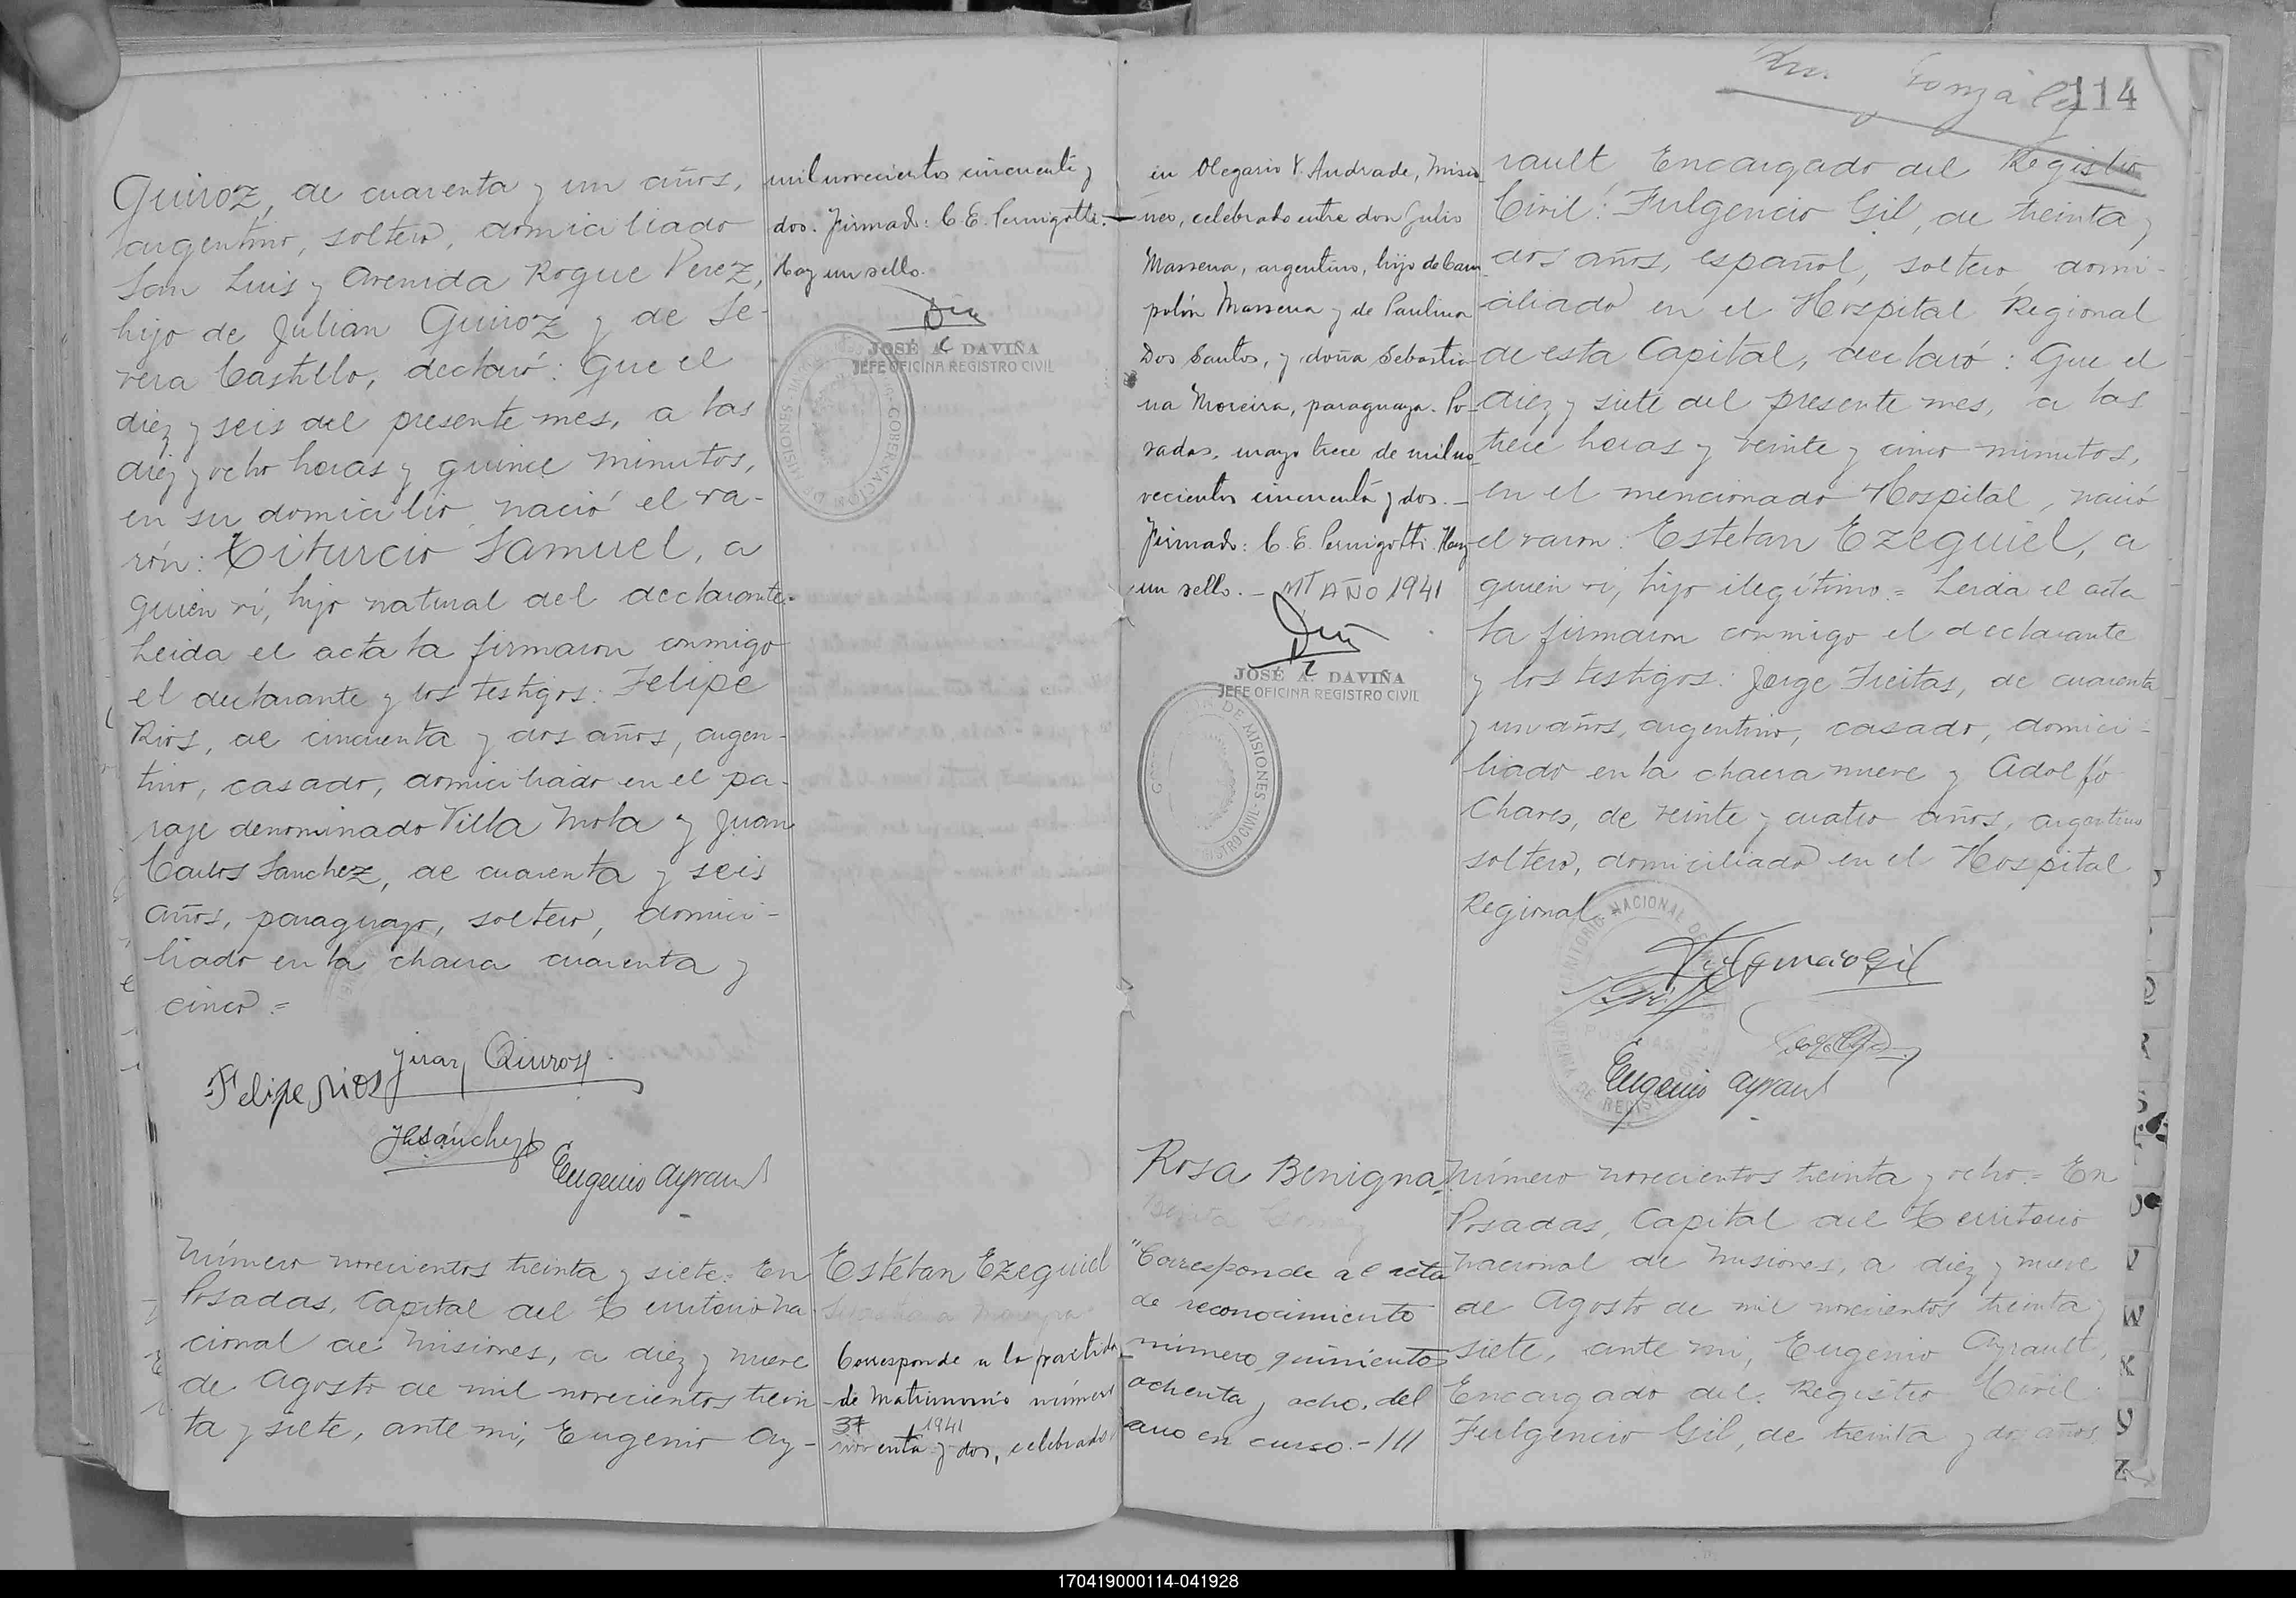 Quiroz, de cuarenta y un años,
argentino, soltero, domiciliado
San Luis y Avenida Roque Perez,
hijo de Julian Quiroz y de Se-
vera Castillo, declaró: Que el
diez y seis del presente mes, a las
diez y ocho horas y quince minutos,
en su domicilio nació el va-
rón: Titurcio Samuel, a
quien ví, hijo natural del declarante.
Leida el acta la firmaron conmigo
el declarante y los testigos: Felipe
Rios, de cincuenta y dos años, argen-
tino, casado, domiciliado en el pa-
raje denominado Villa Mola y Juan
Carlos Sanchez, de cuarenta y seis
años, paraguayo, soltero, domici-
liado en la chacra cuarenta y
cinco =
Juan Quiroz
Felipe Rios
JCSánchez
Eugenio Ayrault
Número novecientos treinta y siete = En
Posadas, Capital del Territorio Na-
cional de Misiones, a diez y nueve
de Agosto de mil novecientos trein-
ta y siete, ante mi, Eugenio Ay-
mil novecientos cincuenta y
dos. Firmado: C. E. Pernigotti.-
Hay un sello.
JOSÉ A. DAVIÑA
JEFE OFICINA REGISTRO CIVIL
GOBERNACION DE MISIONES
Esteban Ezequiel
Corresponde a la partida
de matrimonio número
37 1941
y dos, celebrado
en Olegario V. Andrade, Misio-
nes, celebrado entre don Julio
Massena, argentino, hijo de Cam
polón Massena y de Paulina
Dos Santos, y doña Sebastia-
na Moreira, paraguaya. Po-
sadas, mayo trece de mil no-
vecientos cincuenta y dos.-
Firmado: C. E. Pernigotti. Hay
un sello.- AÑO 1941
JOSÉ A. DAVIÑA
JEFE OFICINA REGISTRO CIVIL
DE MISIONES - REGISTRO CIVIL
Rosa Benigna
"Corresponde al acta
de reconocimiento
número quinientos
ochenta y ocho, del
año en curso.-///
González
114
rault Encargado del Registro
Civil: Fulgencio Gil, de treinta y
dos años, español, soltero, domi-
ciliado en el Hospital Regional
de esta Capital, declaró: Que el
diez y siete del presente mes, a las
trece horas y veinte y cinco minutos,
en el mencionado Hospital, nació
el varon: Esteban Ezequiel, a
quien ví, hijo ilegítimo = Leida el acta
la firmaron conmigo el declarante
y los testigos: Jorge Freitas, de cuarenta
y un años, argentino, casado, domici-
liado en la chacra nueve y Adolfo
Chaves, de veinte y cuatro años, argentino
soltero, domiciliado en el Hospital
Regional
Fulgencio Gil
Eugenio Ayrault
Número novecientos treinta y ocho = En
Posadas, Capital del Territorio
Nacional de Misiones, a diez y nueve
de Agosto de mil novecientos treinta y
siete, ante mi, Eugenio Ayrault,
Encargado del Registro Civil:
Fulgencio Gil, de treinta y dos años
170419000114-041928